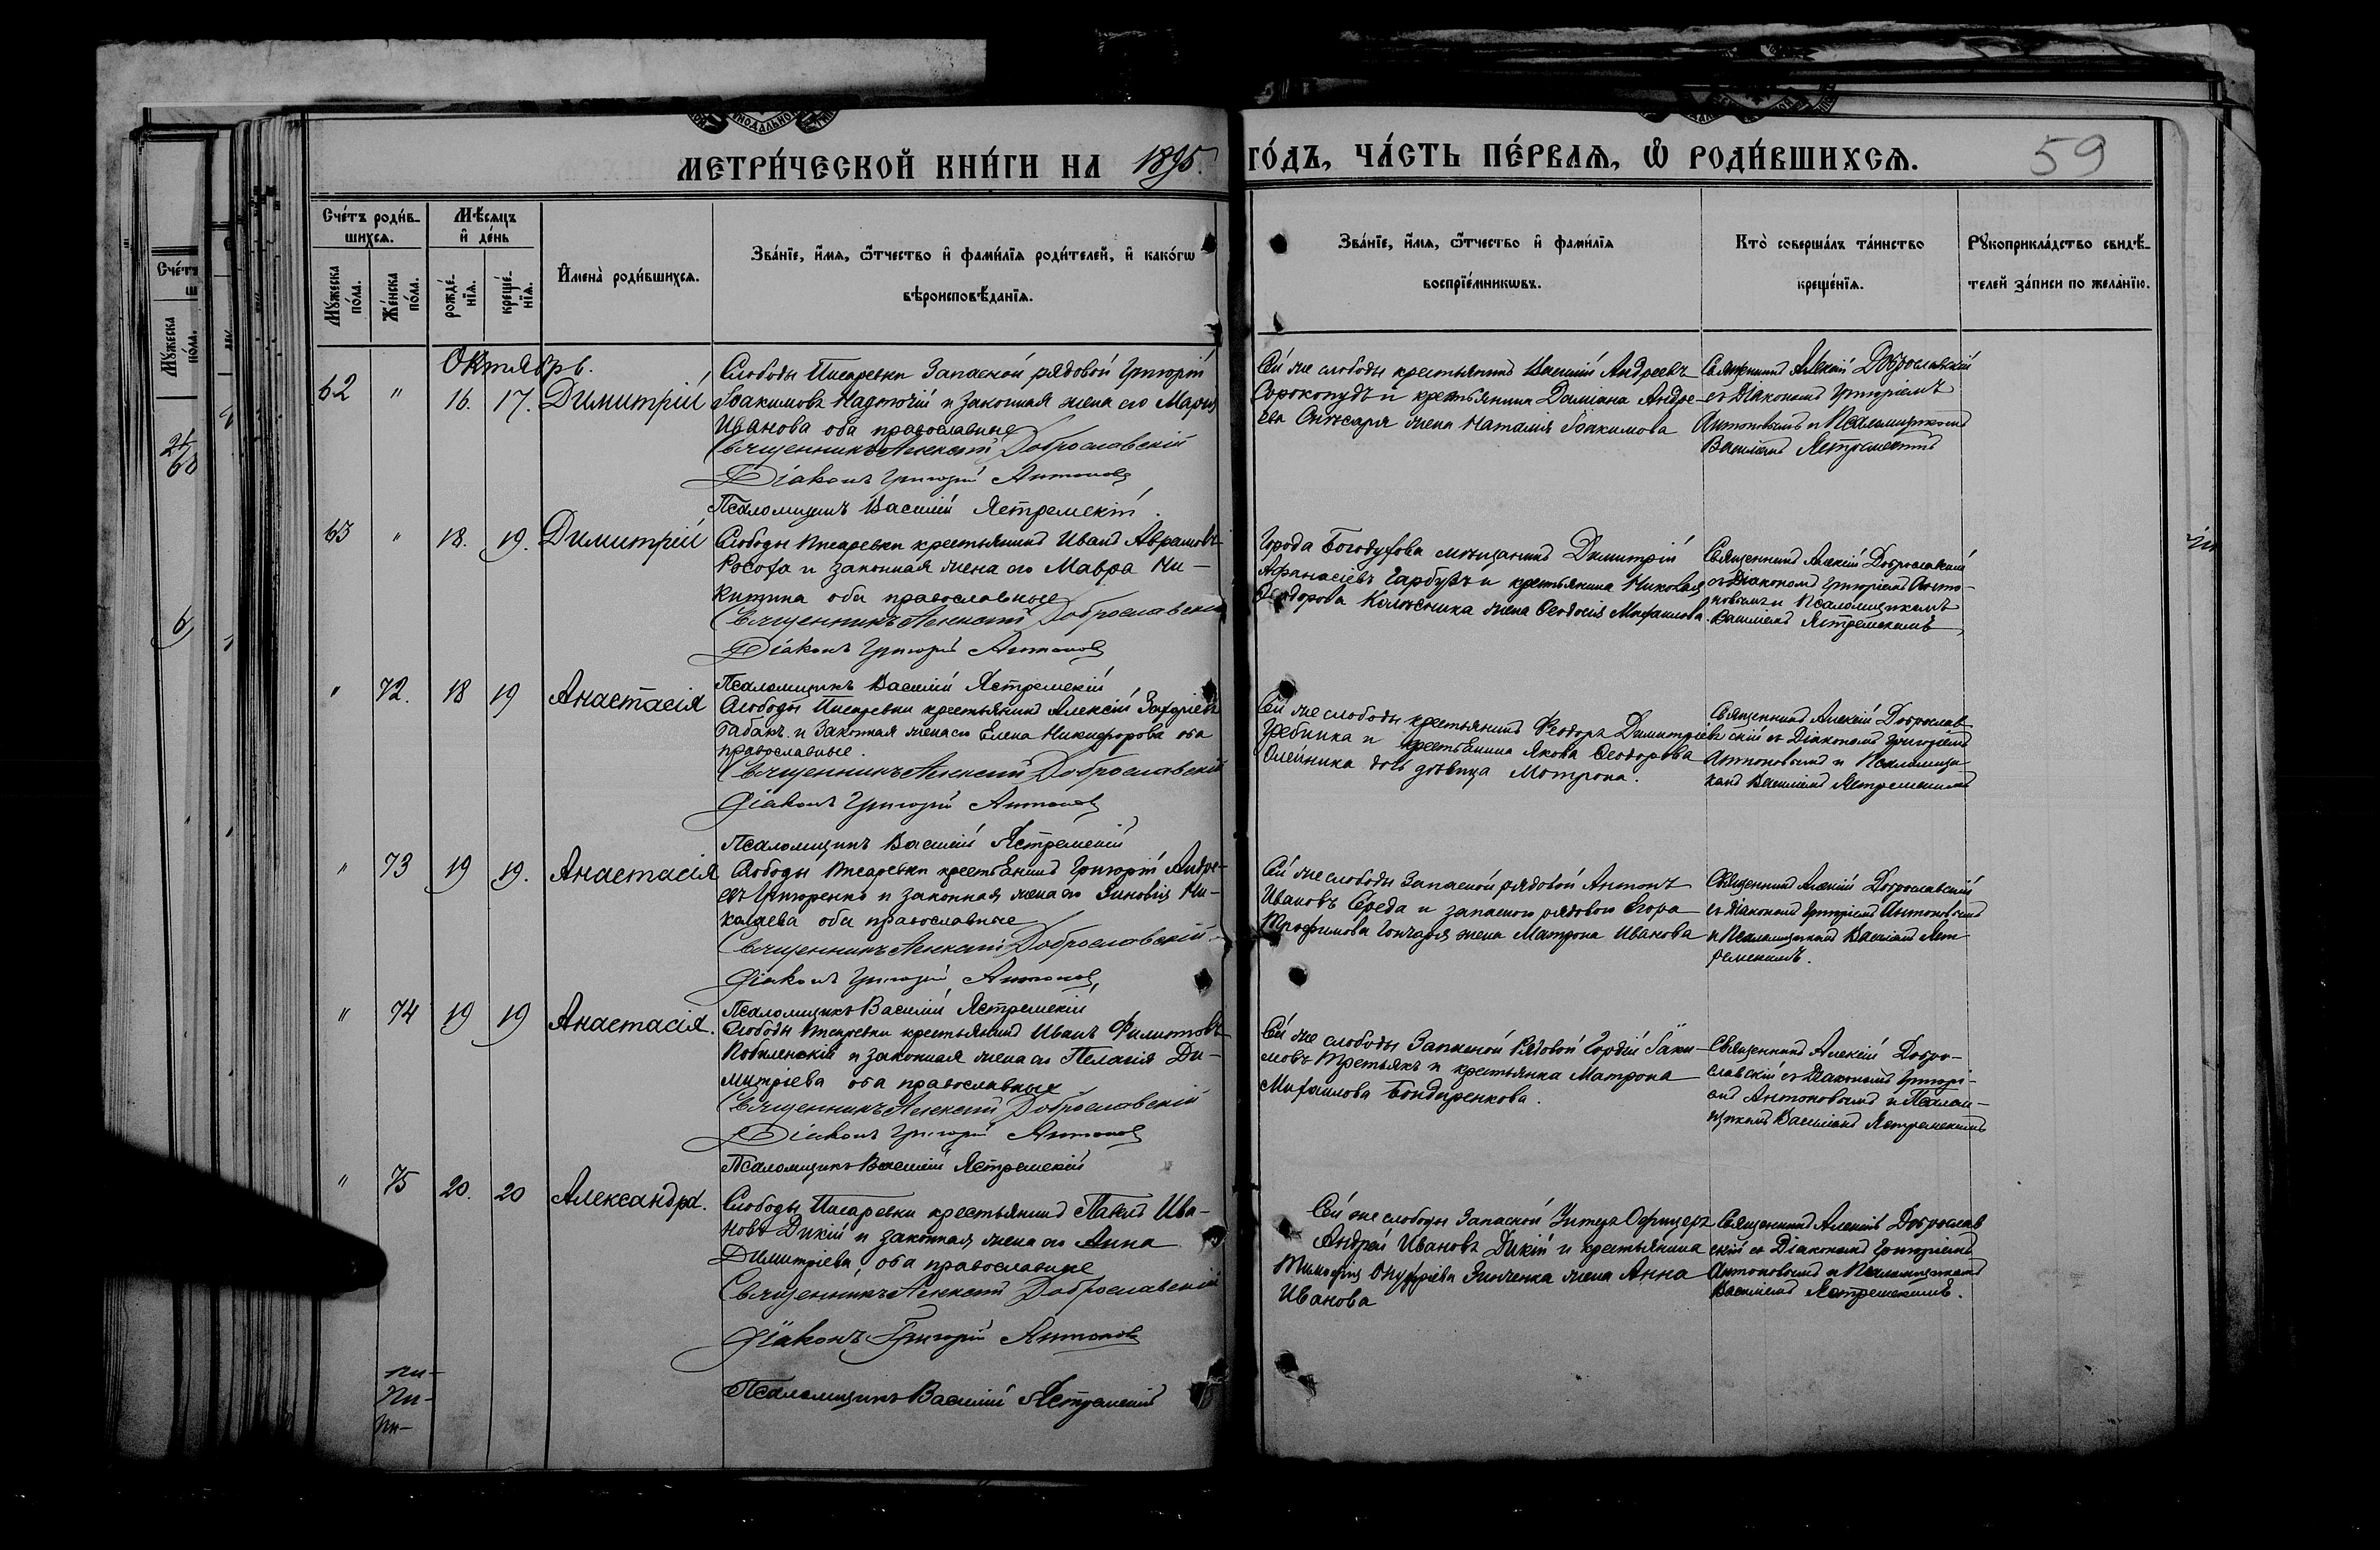 МЕТРИ́ЧЕСКОЙ КНИ́ГИ НА 1895.
ГО́ДЪ, ЧА́СТЬ ПЕ́РВАѦ, Ѡ҆ РОДИ́ВШИХСѦ.
59
Сче́тъ роди́в-
шихсѧ.
Мꙋжеска
по́ла.
Же́нска
по́ла.
Мѣ́сѧцъ
и҆ де́нь
рожде́-
нїѧ.
креще́-
нїѧ.
И҆мена̀ роди́вшихсѧ.
Зва́нїе, и҆́мѧ, ѻ҆́тчество и҆ фами́лїѧ роди́телей, и҆ како́гѡ
вѣроисповѣ́данїѧ.
Зва́нїе, и҆́мѧ, ѻ҆́тчество и҆ фами́лїѧ
воспрїе́мникѡвъ.
Кто̀ соверша́лъ та́инство
креще́нїѧ.
Рꙋкоприкла́дство свидѣ́-
телей за́писи по жела́нїю.
Октябрь.
62 " 16. 17. Димитрій
Слободы Писаревки Запасной рядовой Григорій
Іоакимовъ Надточій и законная жена его Марія
Иванова оба православные
Священникъ Алексій Доброславскій
Діаконъ Григорій Антоновъ
Псаломщикъ Василій Ястремскій.
Сей же слободы крестьянинъ Василій Андреевъ
Сорокопудъ и крестьянина Даміана Андре-
ева Слюсаря жена Наталія Іоакимова
Священникъ Алексій Доброславскій
съ Діакономъ Григоріемъ
Антоновымъ и Псаломщикомъ
Василіемъ Ястремскимъ
63 " 18. 19. Димитрій
Слободы Писаревки крестьянинъ Иванъ Аврамовъ
Росоха и законная жена его Мавра Ни-
китина оба православные
Священникъ Алексій Доброславскій
Діаконъ Григорій Антоновъ
Псаломщикъ Василій Ястремскій
Города Богодухова мѣщанинъ Димитрій
Афанасіевъ Гарбузъ и крестьянина Николая
Ѳеодорова Колѣсника жена Ѳеодосія Михаилова
Священникъ Алексій Доброславскій
съ Діакономъ Григоріемъ Анто-
новымъ и Псаломщикомъ
Василіемъ Ястремскимъ
" 72. 18 19 Анастасія
Слободы Писаревки крестьянинъ Алексій Захаріевъ
Табакъ и Законная жена его Елена Никифорова оба
православные.
Священникъ Алексій Доброславскій
Діаконъ Григорій Антоновъ
Псаломщикъ Василій Ястремскій
Сей же слободы крестьянинъ Ѳеодоръ Димитріевъ
Гребинка и крестьянина Якова Ѳеодорова
Олейника дочь дѣвица Мотрона.
Священникъ Алексій Доброслав
скій съ Діакономъ Григоріемъ
Антоновымъ и Псаломщи-
комъ Василіемъ Ястремскимъ
" 73 19 19. Анастасія
Слободы Писаревки крестьянинъ Григорій Андре-
евъ Григоренко и законная жена его Зиновія Ни-
колаева оба православные
Священникъ Алексій Доброславскій
Діаконъ Григорій Антоновъ
Псаломщикъ Василій Ястремскій
Сей же слободы Запасной рядовой Антонъ
Ивановъ Середа и запасного рядового Егора
Трофимова Гончаря жена Матрона Иванова
Священникъ Алексій Доброславскій
съ Діакономъ Григоріемъ Антоновымъ
и Псаломщикомъ Василіемъ Яст-
ремскимъ.
" 74 19 19 Анастасія.
Слободы Писаревки крестьянинъ Иванъ Филиповъ
Кобиленскій и законная жена его Пелагія Ди-
митріева оба православные
Священникъ Алексій Доброславскій
Діаконъ Григорій Антоновъ
Псаломщикъ Василій Ястремскій
Сей же слободы Запасной Рядовой Гордій Іаки-
мовъ Третьякъ и крестьянка Матрона
Михаилова Бондаренкова.
Священникъ Алексій Добро-
славскій съ Діакономъ Григорі-
емъ Антоновымъ и Псалом-
щикомъ Василіемъ Ястремскимъ
" 75 20. 20 Александра.
Слободы Писаревки крестьянинъ Павелъ Ива-
новъ Дикій и законная жена его Анна
Димитріева, оба православные
Священникъ Алексій Доброславскій
Діаконъ Григорій Антоновъ
Псаломщикъ Василій Ястремскій
Сей же слободы Запасной Унтеръ Офицеръ
Андрей Ивановъ Дикій и крестьянина
Тимофія Онуфріева Зинченка жена Анна
Иванова
Священникъ Алексій Доброслав
скій съ Діакономъ Григоріемъ
Антоновымъ и Псаломщикомъ
Василіемъ Ястремскимъ.